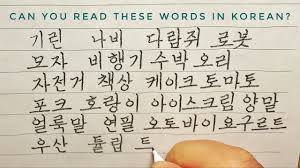 CAN YOU READ THESE WORDS IN KOREAN?
기린 나비 다람쥐 로봇
모자 비행기 수박 오리
자전거 책상 케이크 토마토
포크 호랑이 아이스크림 양말
얼룩말 연필 오토바이 요구르트
우산 튤립 트